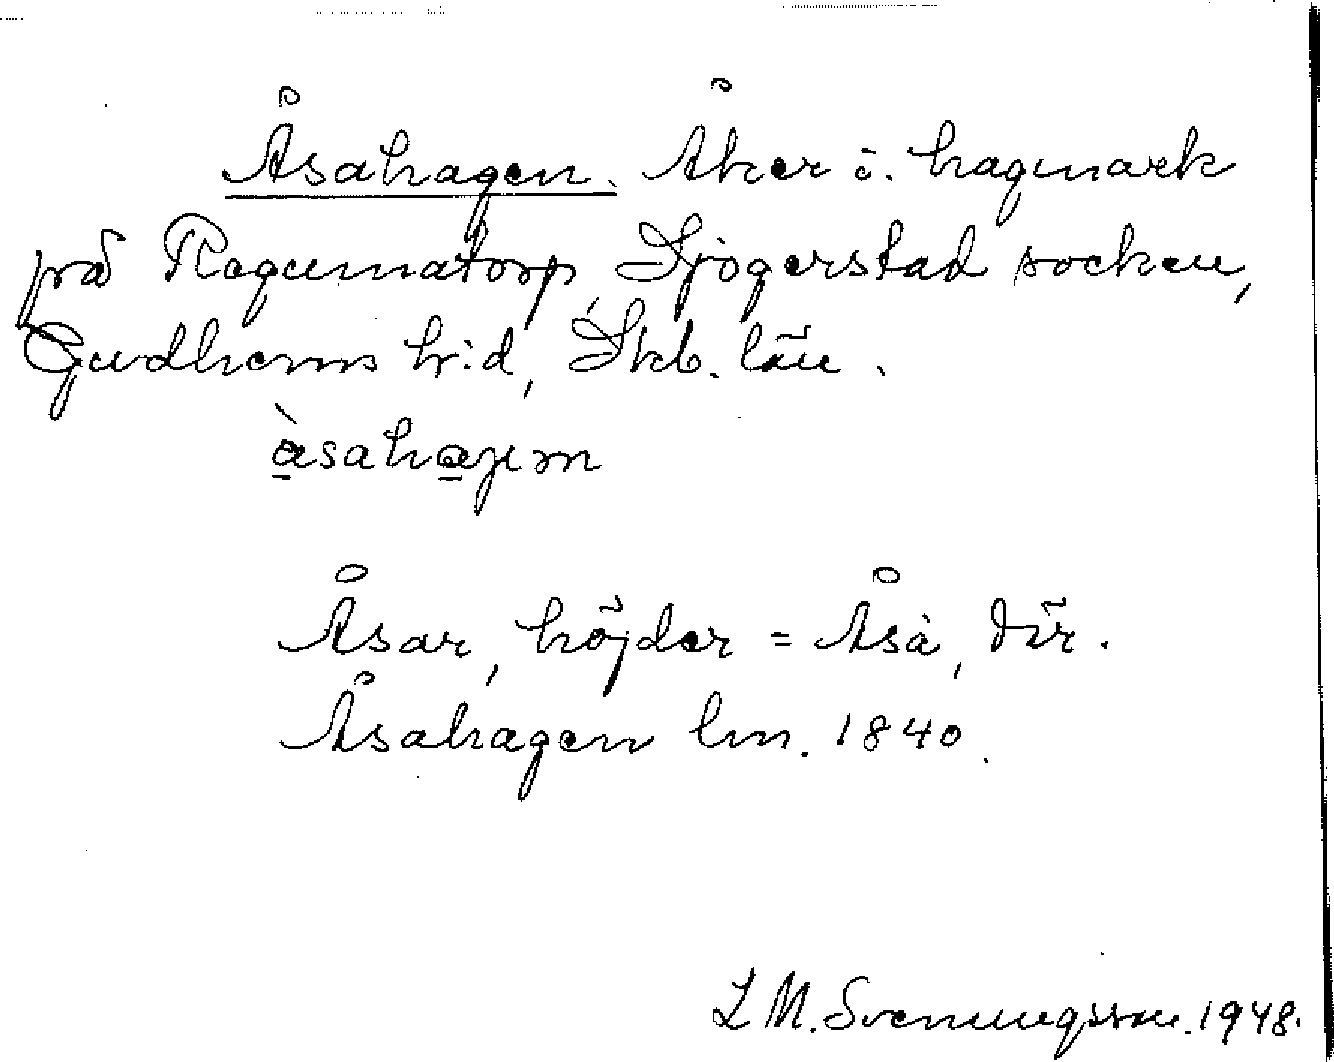 Åsahagen. Åker o. hagmark
på Ragnmatorp, Sjögerstad socken,
Gudhems h:d, Skb. län.
àsahaჟεn
Åsar, höjder = Åsà, där.
Åsahagen lm. 1840.
L M. Svenungsson. 1948.